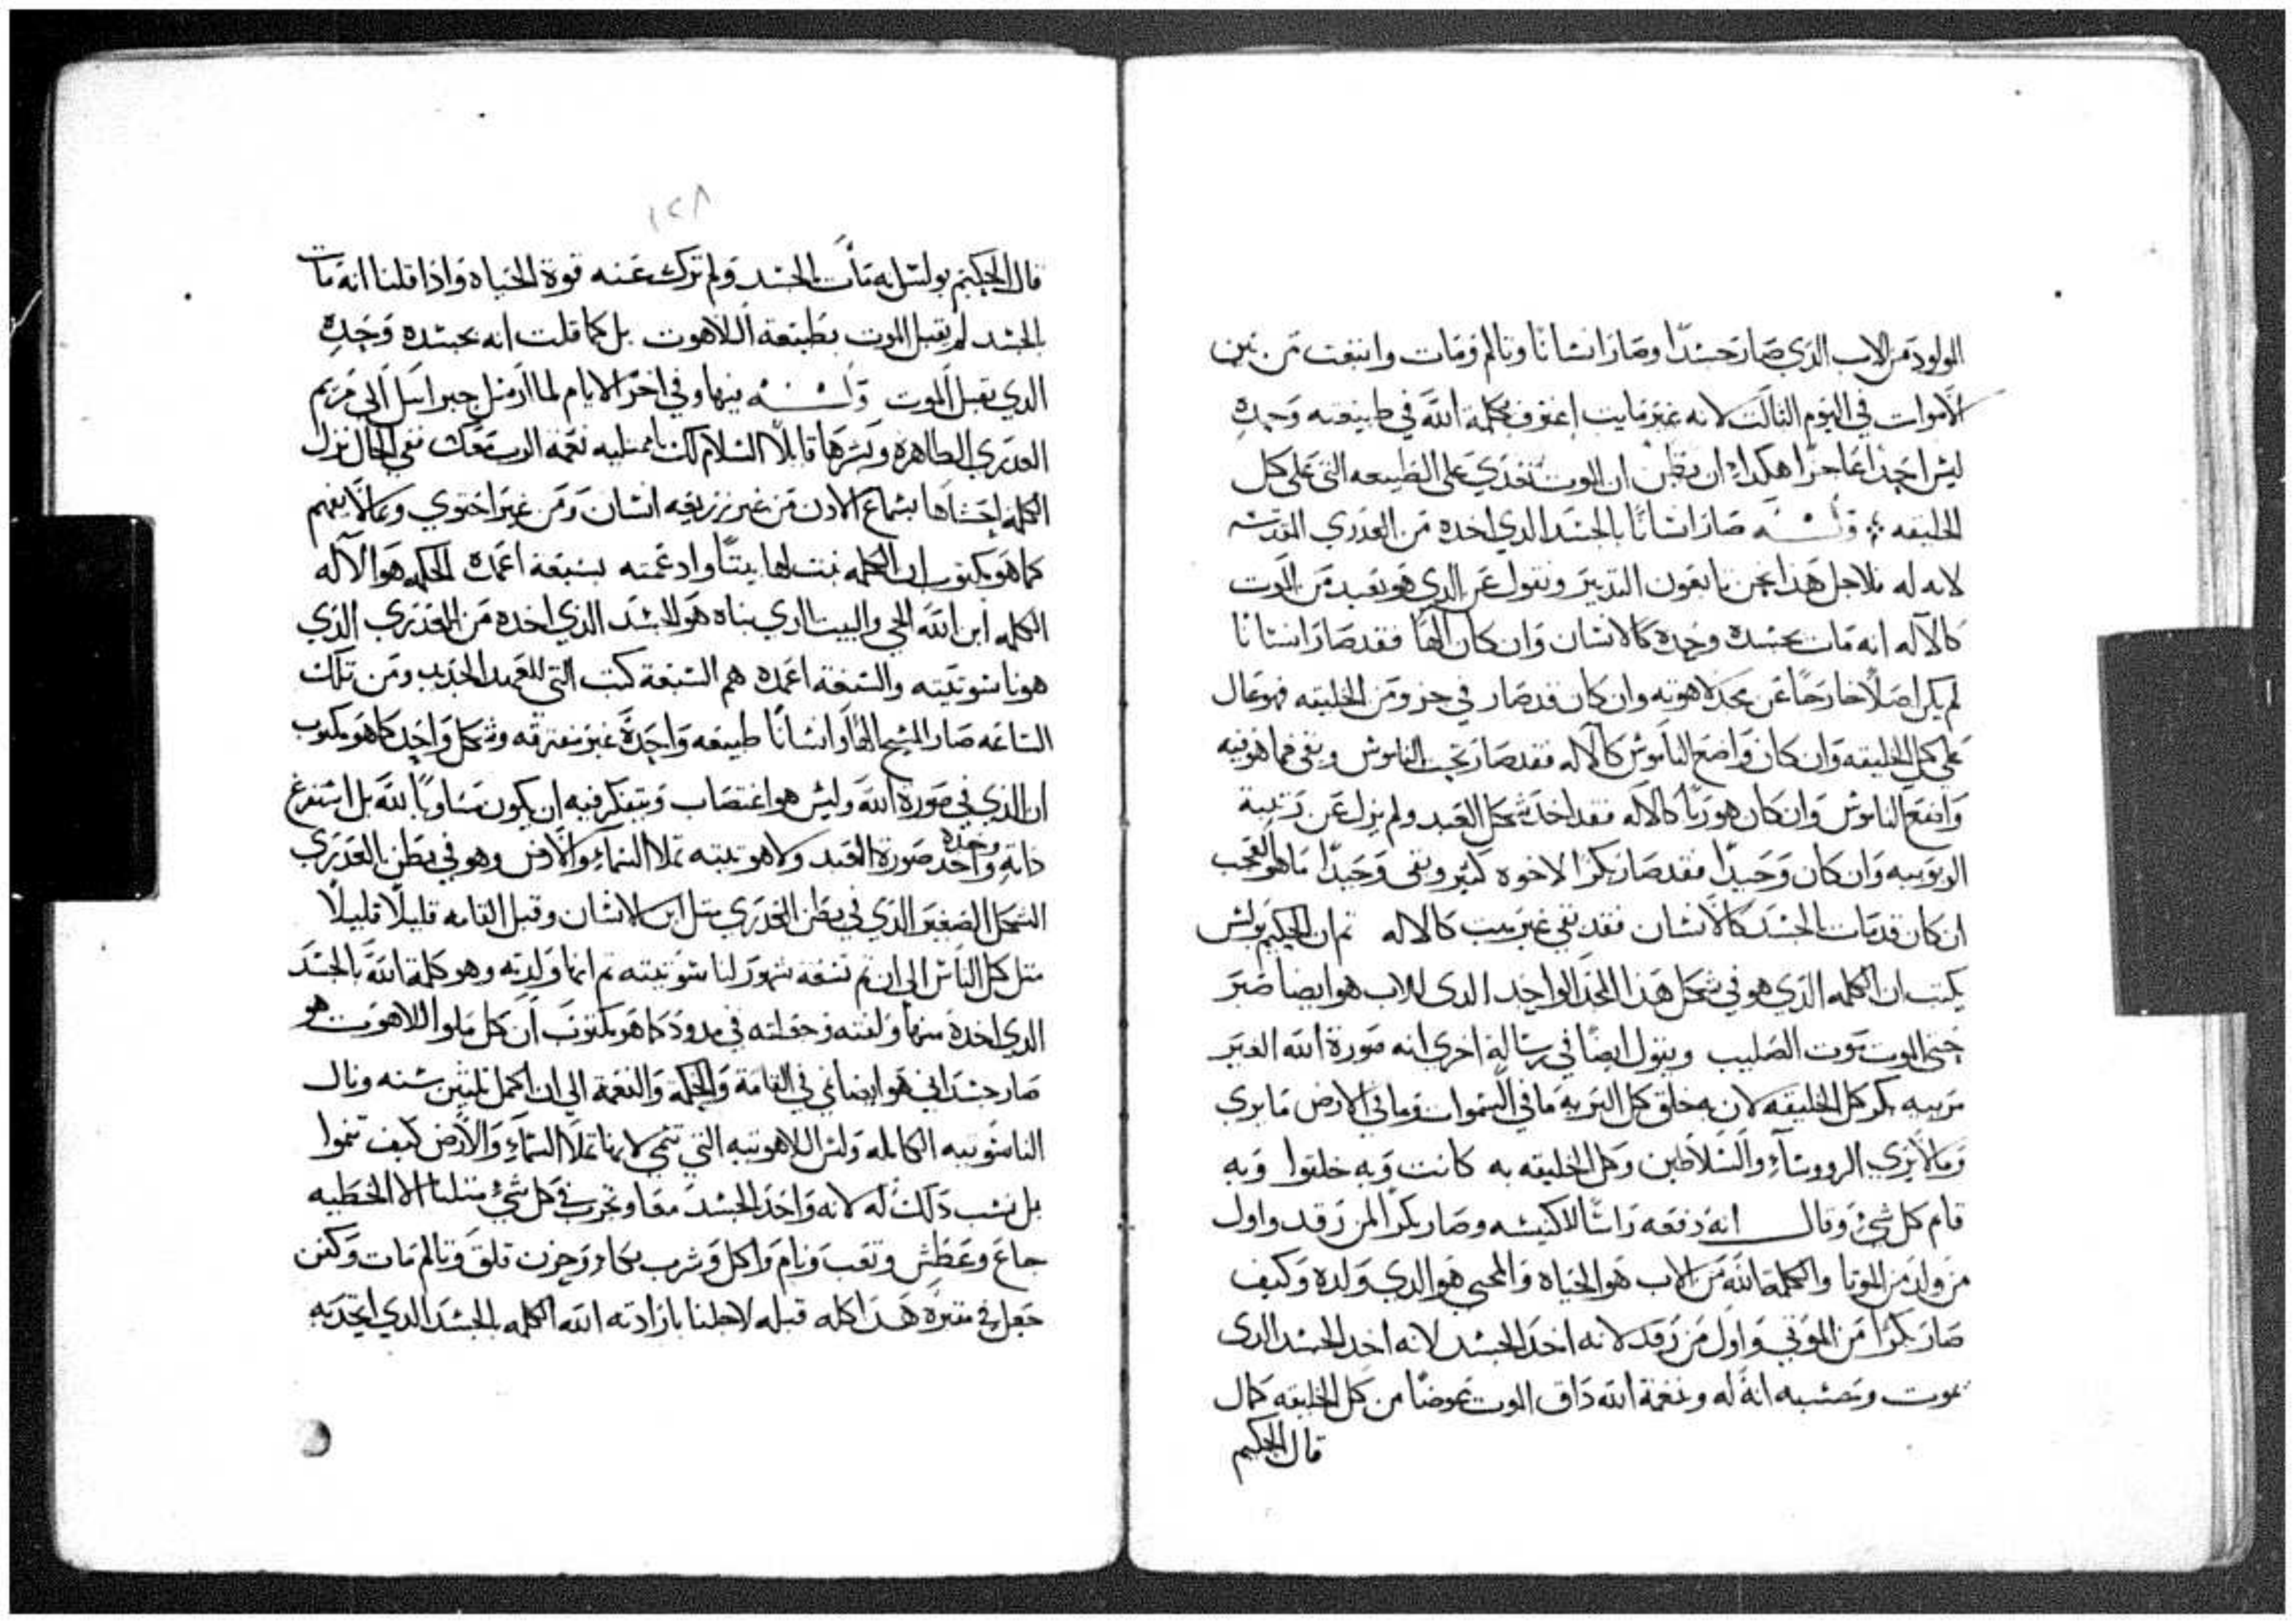 المولود من الاب الدي صار جسدًا وصار انسانًا وتالم ومات وانبعت من بين
الاموات في اليوم التالت لانه غير مايت اعترف بكلمة الله في طبيعته وحده
ليس احد اعاجزا هكداء ان يظن ان الموت تعدي على الطبيعه التي على كل
الخليقه ❖ وله صار انسانًا بالجسد الدي اخده من العدري القدسه
لانه له فلاجل هدا نحن تابعون التدبير ونقول عن الدي هو بعيد من الموت
كالاله انه مات بجسده وحده كالانسان وان كان الهًا فقد صار انسانًا
لم يكن اصلًا خارجًا عن مجد لاهوته وان كان قد صار في جزو من الخليقه فهو عال
على كل الخليقه وان كان واضع الناموس كالاله فقد صار تحت الناموس وبقي فيما هو فيه
واضع الناموس وان كان هو ربًا كالاله فقد اخد شكل العبد ولم يزل عن رتبة
الربوبيه وان كان وحيدًا فقد صار بكرًا لاخوه كتير وبقي وحيدًا ما هو العجب
ان كان قد مات بالجسد كالانسان فقد بقي غير ميت كالاله تم ان الحكيم بولس
يكتب ان الكلمه الدي هو في شكل هدا المجد الواحد الدي للاب هو ايضا صبر
حتى الموت موت الصليب ويقول ايضًا في رسالة اخري انه صورة الله الغير
مرييه بكر كل الخليقه لان به خلق كل البريه ما في السموات وما في الارض ما يري
وما لا يري الرووساء والسلاطين وكل الخليقه به كانت وبه خلقوا وبه
قام كل شيء وقال انه دفعه راسًا للكنيسه وصار بكرًا لمن رقد واول
من ولد من الموتا والكلمة الله من الاب هو الحياه والمحيي هو الدي ولده وكيف
صار بكرًا من الموتى واول من رقد لانه اخد الجسد لانه اخد الجسد الدي
يموت وحسبه انه له وبنعمة الله داق الموت عوضًا من كل الخليقه كمال
قال الحكيم
١٢٨
قال الحكيم بولس انه مات بالجسد ولم تترك عنه قوة الحياه واذا قلنا انه مات
بالجسد لم يقبل الموت بطبيعة اللاهوت بل كما قلت انه بجسده وحده
الدي يقبل الموت وله فيها وفي اخر الايام لما ارسل جبراييل الى مريم
العدري الطاهره وبشرها قايلًا السلام لك يا ممتليه نعمه الرب معك ففي الحال نزل
الكلمه احشاها بسماع الادن من غير زريعه انسان ومن غير احتوي وكما لا يفهم
كما هو مكتوب ان الحكمه بنت لها بيتًا وادعمته بسبعة اعمدة الحكمه هو الاله
الكلمه ابن الله الحي والبيت الدي بناه هو الجسد الدي اخده من العدري الذي
هو ناسوتيته والسبعة اعمده هم السبعة كتب التي للعهد الجديد ومن تلك
الساعه صار المسيح الهًا وانسانًا طبيعه واحدة غير مفترقه وشكل واحد كما هو مكتوب
ان الذي في صورة الله وليس هو اغتصاب ويتفكر فيه ان يكون مساويًا لله بل استفرغ
ذاته وحده واخد صورة العبد ولاهوتيته تملا السماء والارض وهو في بطن العدري
الشكل الصغير الذي في بطن العدري متل ابن الانسان وقبل القامه قليلًا قليلًا
متل كل الناس الى ان تم تسعة شهور لناسوتيته تم انها ولدته وهو كلمة الله بالجسد
الدي اخده منها ولفته وجعلته في مدود كما هو مكتوب ان كل ملوا اللاهوت هو
صار جسداني هو ايضا نمي في القامة والحكمة والنعمة الى ان اكمل تلتين سنه ونال
الناسوتيه الكامله وليس اللاهوتيه التي تنمي لانها تملا السماء والارض كيف تنموا
بل نسب دلك له لانه واحد بالجسد معا وتجرب في كل شيء متلنا الا الخطيه
جاع وعطش وتعب ونام واكل وشرب بكاء وحزن قلق وتالم مات وكفن
جعل في مقبره هدا كله قبله لاجلنا بارادته الله الكلمه بالجسد الدي اتحد به